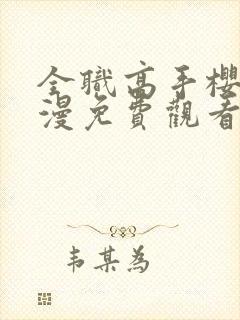 全職高手櫻
漫免費觀看
韦某為